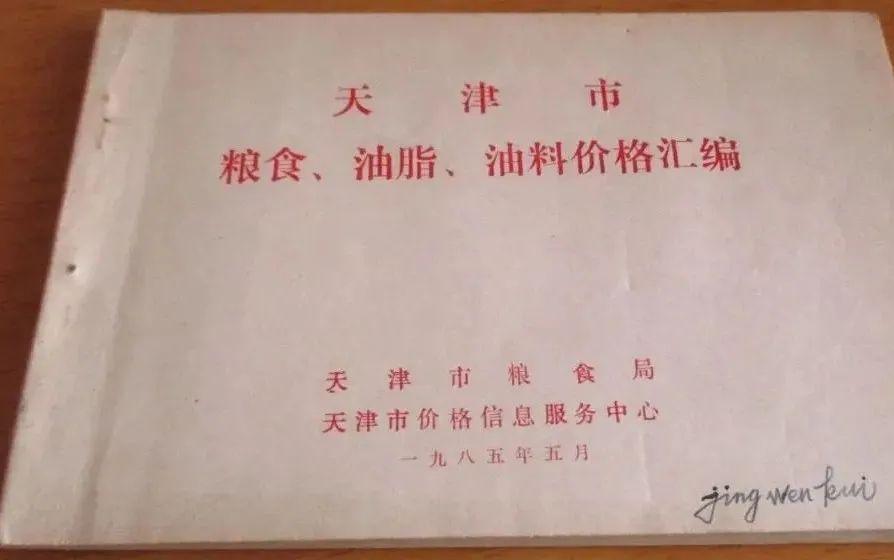 天津市
粮食、油脂、油料价格汇编
天津市粮食局
天津市价格信息服务中心
一九八五年五月
jing wen kui